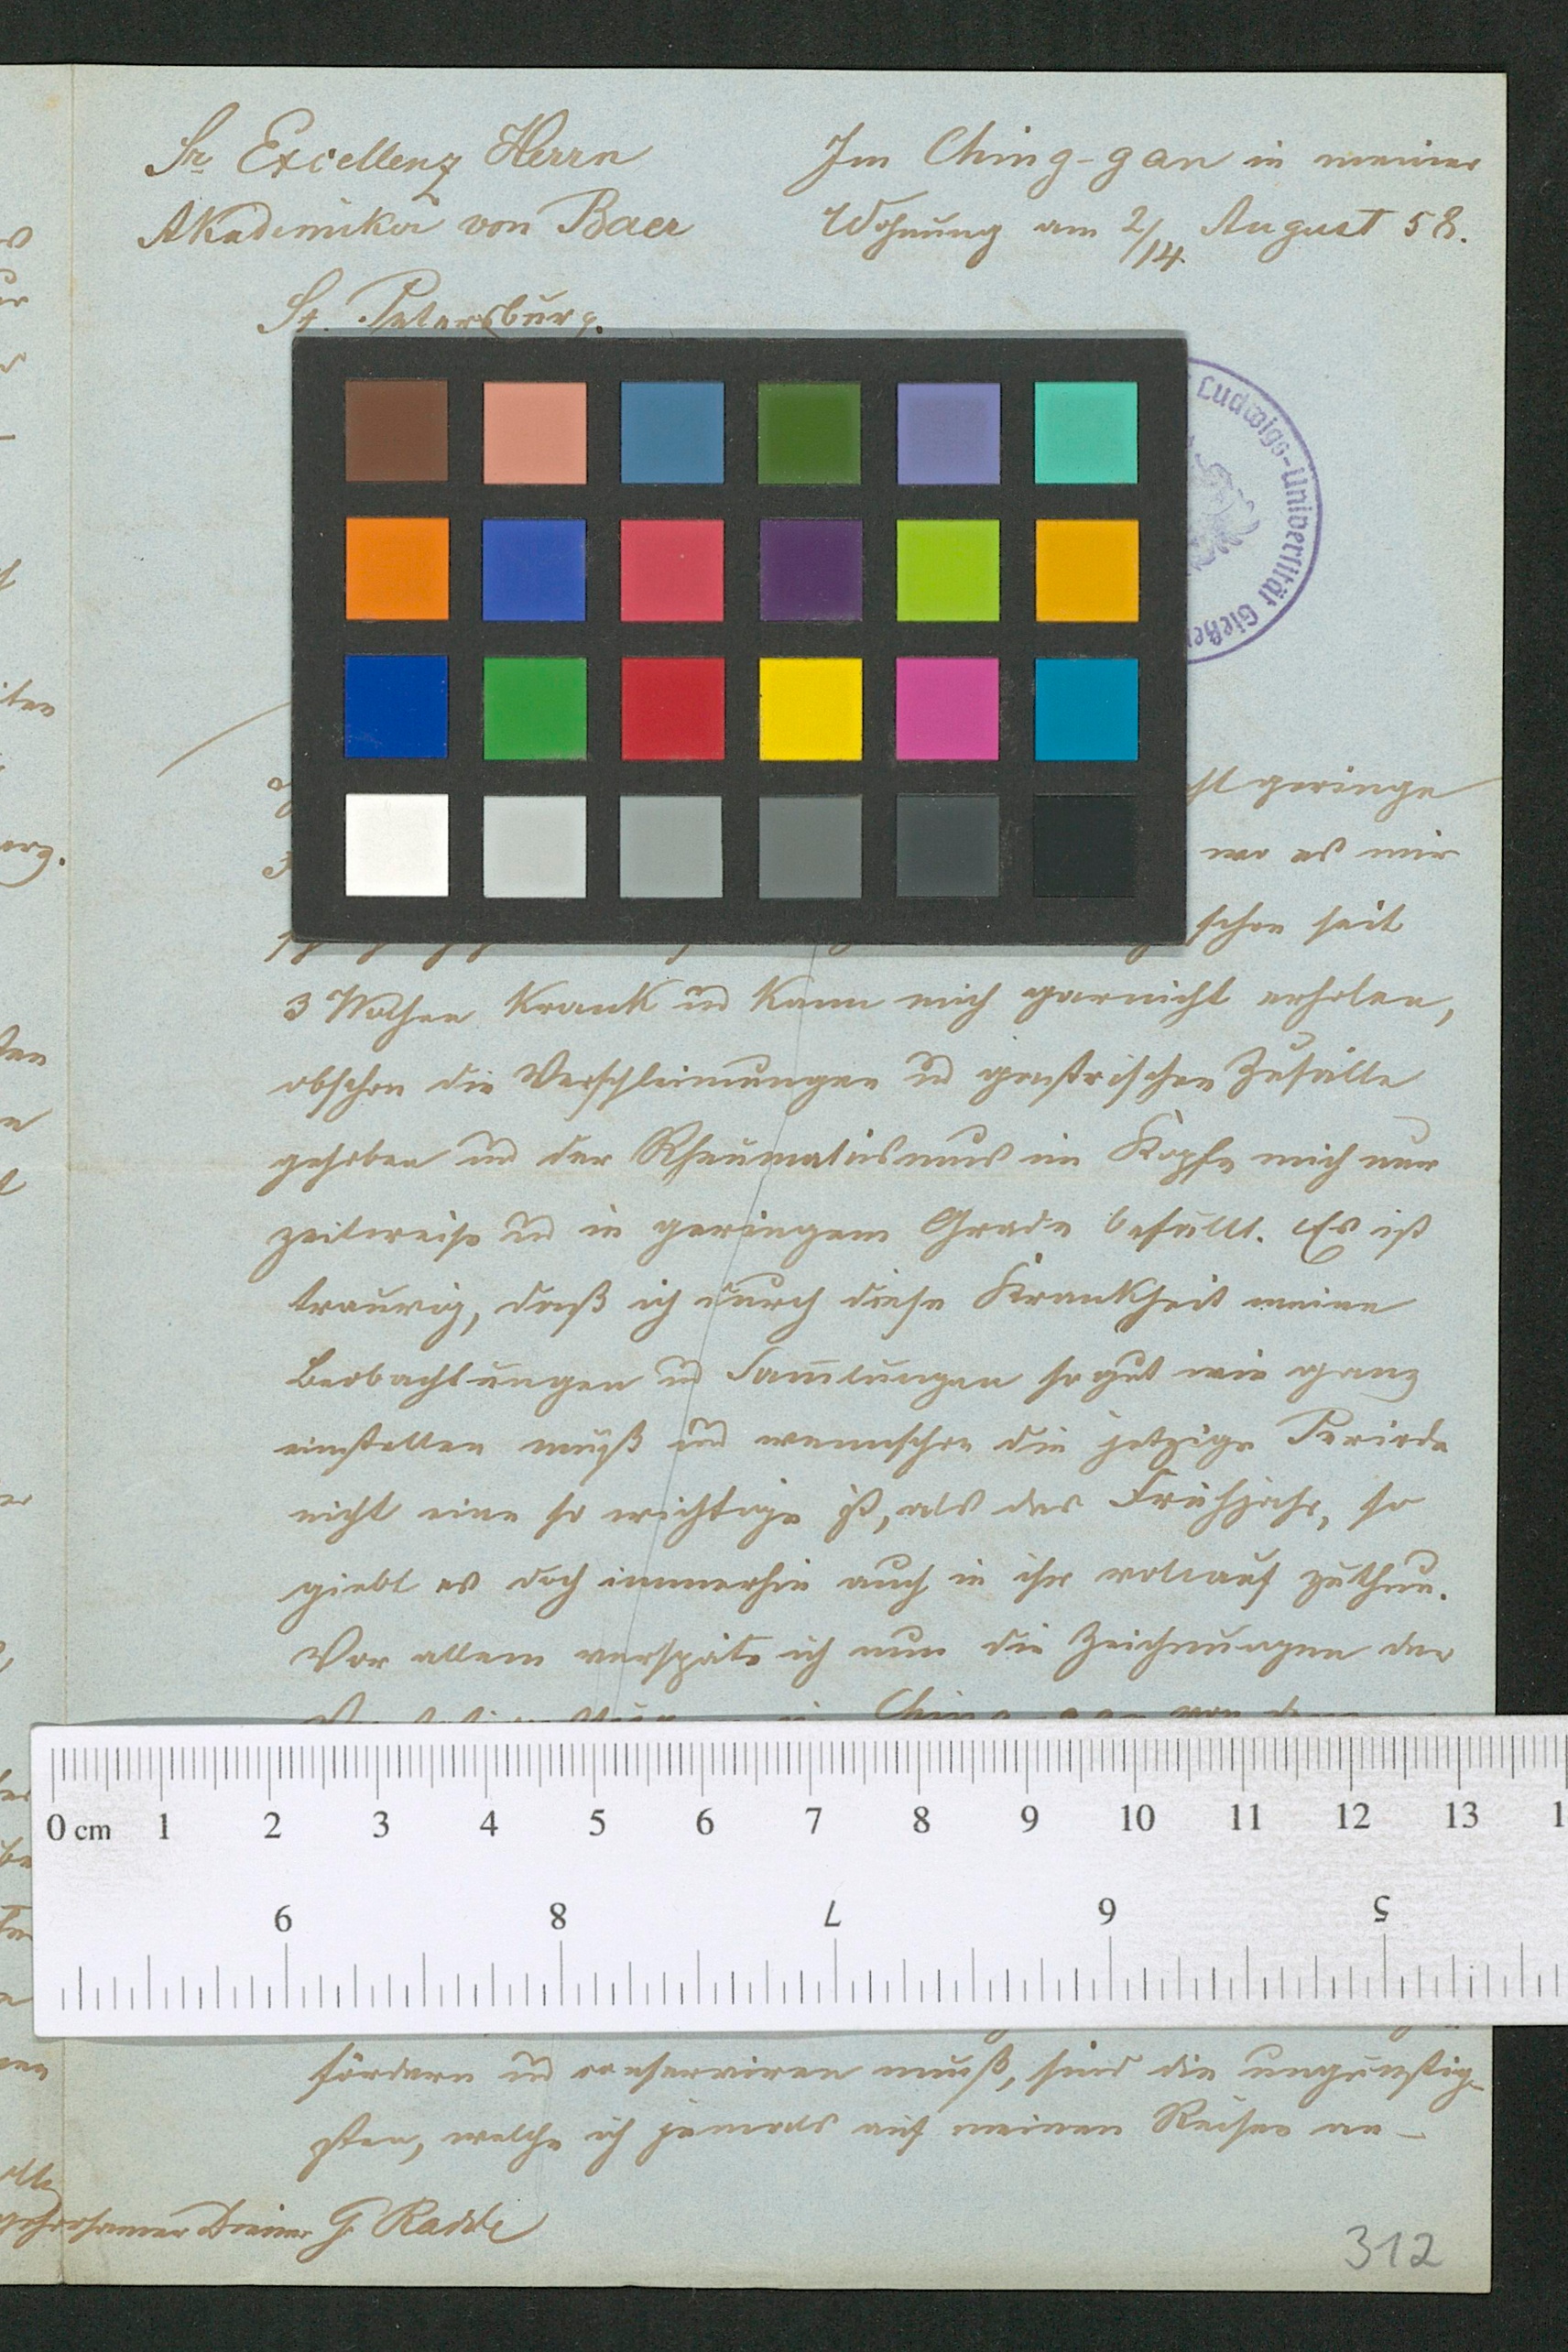 Sr Excellenz Herrn
Akademiker von Baer
St. Petersburg.
Im Ching-gan in meiner
Wohnung am 2/14 August 58.
Ludwigs-Universität Gieße
st geringe
wo es mir
schon seit
3 Wochen krank ud kann mich garnicht erholen,
obschon die Verschleimungen ud gastrischen Zufälle
gehoben und der Rheumatismus im Kopfe mich nur
zeitweise ud in geringem Grade befällt. Es ist
traurig, daß ich durch diese Krankheit meine
Beobachtungen ud Sam̅lungen so gut wie ganz
einstellen muß ud wennschon die jetzige Periode
nicht eine so wichtige ist, als das Frühjahr, so
giebt es doch immerhin auch in ihr vollauf zuthun.
Vor allem verspäte ich nun die Zeichnungen der
Ching-gan von dem
0 cm 1 2 3 4 5 6 7 8 9 10 11 12 13 1
9 8 7 6 5
fördern ud conserviren muß, sind die ungünstig-
sten, welche ich jemals auf meinen Reisen an-
gehorsamer Diener G. Radde
312